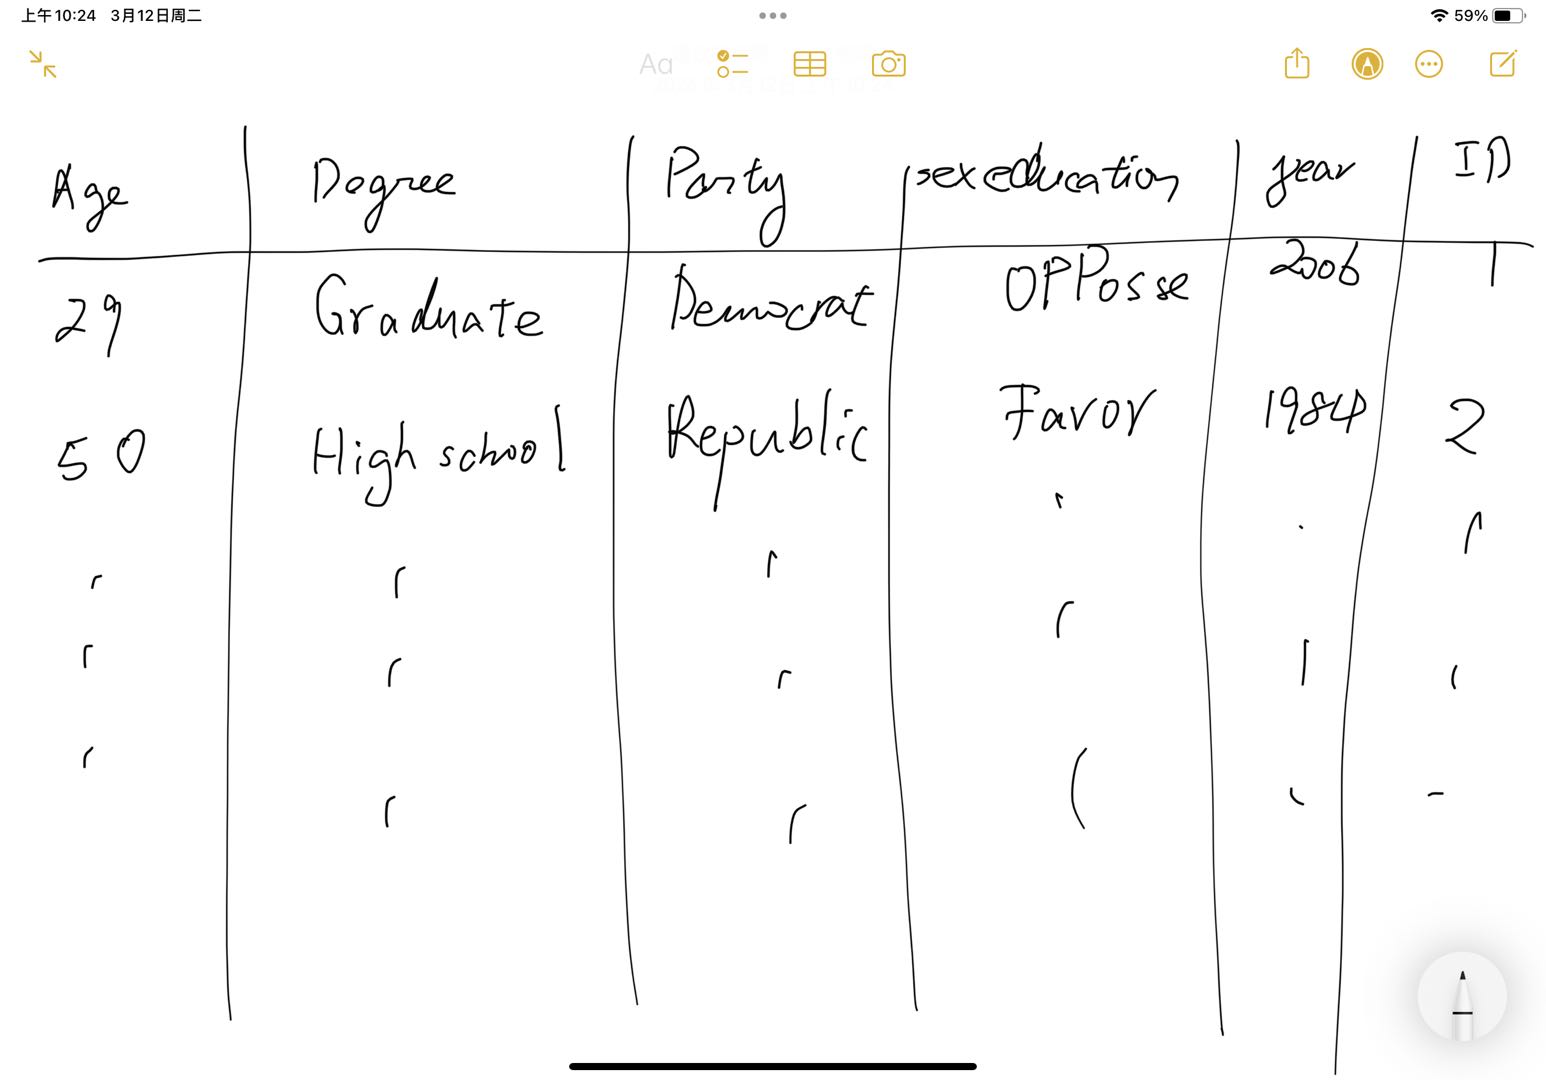 上午10:24 3月12日周二
59%
Aa
Age Degree Party sexeducation year ID
29 Graduate Democrat OPPosse 2006 1
50 High school Republic Favor 1984 2